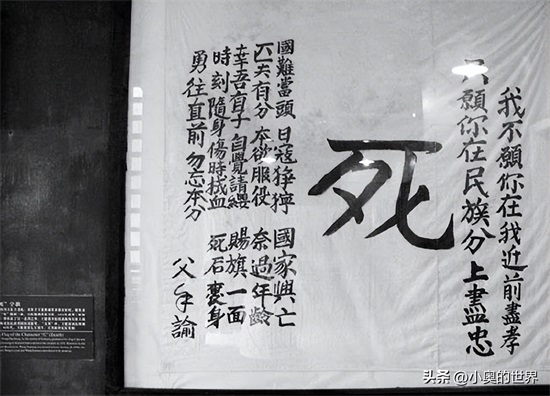 我不願你在我近前盡孝
只願你在民族分上盡忠
死
國難當頭 日寇猙獰 國家興亡
匹夫有分 本欲服役 奈過年齡
幸吾有子 自覺請纓 賜旗一面
時刻隨身 傷時拭血 死后裹身
勇往直前 勿忘本分
父手諭
"死"字旗
头条 @小奥的世界